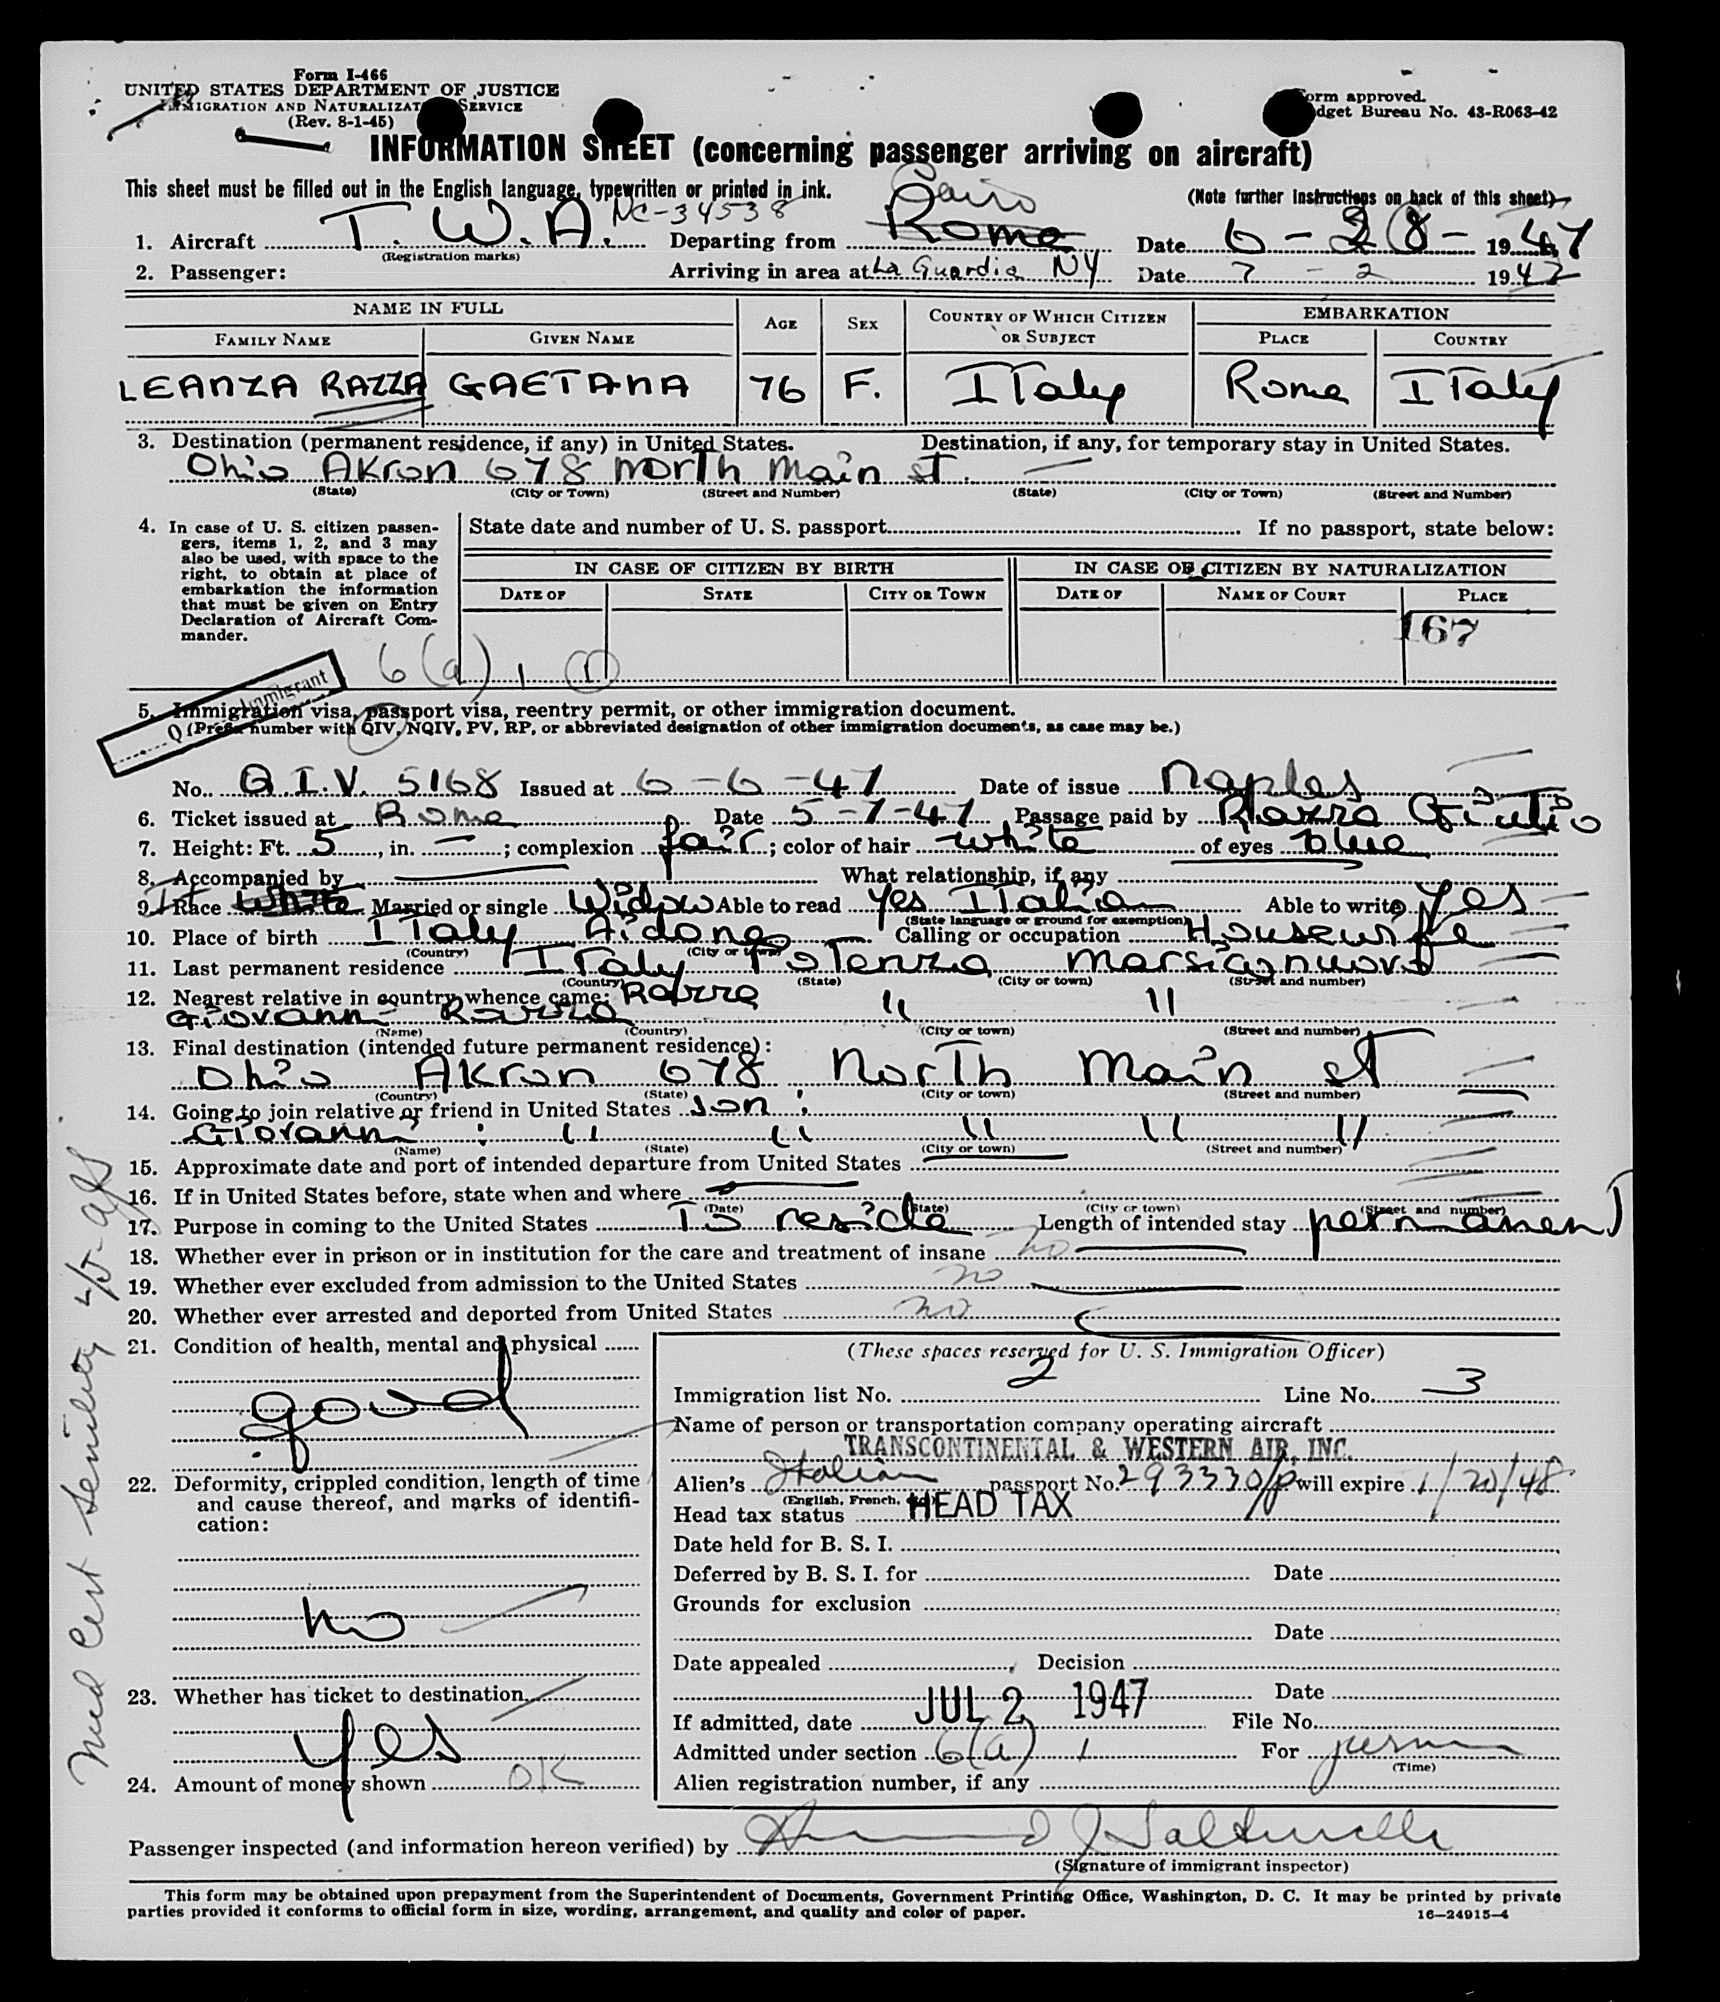 Form I-466
UNITED STATES DEPARTMENT OF JUSTICE
IMMIGRATION AND NATURALIZATION SERVICE
(Rev. 8-1-45)
Form approved.
Budget Bureau No. 43-R063-42
INFORMATION SHEET (concerning passenger arriving on aircraft)
This sheet must be filled out in the English language, typewritten or printed in ink.
(Note further instructions on back of this sheet)
Cairo
1. Aircraft T. W. A. NC-34538 Departing from Rome Date 6-28- 1947
(Registration marks)
2. Passenger: Arriving in area at La Guardia NY Date 7-2 1947
NAME IN FULL AGE SEX COUNTRY OF WHICH CITIZEN OR SUBJECT EMBARKATION
FAMILY NAME GIVEN NAME PLACE COUNTRY
LEANZA RAZZA GAETANA 76 F. ITaly Rome ITaly
3. Destination (permanent residence, if any) in United States. Destination, if any, for temporary stay in United States.
Ohio Akron 678 North Main st.
(State) (City or Town) (Street and Number) (State) (City or Town) (Street and Number)
4. In case of U. S. citizen passen-
gers, items 1, 2, and 3 may
also be used, with space to the
right, to obtain at place of
embarkation the information
that must be given on Entry
Declaration of Aircraft Com-
mander.
State date and number of U. S. passport If no passport, state below:
IN CASE OF CITIZEN BY BIRTH IN CASE OF CITIZEN BY NATURALIZATION
DATE OF STATE CITY OR TOWN DATE OF NAME OF COURT PLACE
167
6(a) 1 (1)
Immigrant
Q
5. Immigration visa, passport visa, reentry permit, or other immigration document.
(Prefix number with QIV, NQIV, PV, RP, or abbreviated designation of other immigration documents, as case may be.)
No. Q.I.V. 5168 Issued at 6-6-47 Date of issue Naples
6. Ticket issued at Rome Date 5-7-47 Passage paid by Razza Giulio
7. Height: Ft. 5, in. —; complexion fair; color of hair white of eyes blue
8. Accompanied by What relationship, if any
9. Race white Married or single Widow Able to read yes Italian Able to write yes
(State language or ground for exemption)
10. Place of birth ITaly Aidone Calling or occupation Housewife
(Country) (City or town)
11. Last permanent residence ITaly PoTenza Marsiconuovo
(Country) (State) (City or town) (Street and number)
12. Nearest relative in country whence came: Razza
Giovanni Razza " "
(Name) (Country) (City or town) (Street and number)
13. Final destination (intended future permanent residence):
Ohio Akron 678 North Main st
(Country) (State) (City or town) (Street and number)
14. Going to join relative or friend in United States son:
Giovanni : " " " " "
(Name) (State) (City or town) (Street and number)
15. Approximate date and port of intended departure from United States
16. If in United States before, state when and where
(Date) (State) (City or town) (Street and number)
17. Purpose in coming to the United States To reside Length of intended stay permanenT
18. Whether ever in prison or in institution for the care and treatment of insane no
19. Whether ever excluded from admission to the United States no
20. Whether ever arrested and deported from United States no
21. Condition of health, mental and physical
good
22. Deformity, crippled condition, length of time
and cause thereof, and marks of identifi-
cation:
no
23. Whether has ticket to destination
yes
24. Amount of money shown OK
Med Cert Senility
(These spaces reserved for U. S. Immigration Officer)
Immigration list No. 2 Line No. 3
Name of person or transportation company operating aircraft
TRANSCONTINENTAL & WESTERN AIR, INC.
Alien's Italian passport No. 293330/P will expire 1/20/48
(English, French, etc.)
Head tax status HEAD TAX
Date held for B. S. I.
Deferred by B. S. I. for Date
Grounds for exclusion
Date
Date appealed Decision
Date
If admitted, date JUL 2 1947 File No.
Admitted under section 6(a) 1 For perm
(Time)
Alien registration number, if any
Passenger inspected (and information hereon verified) by
(Signature of immigrant inspector)
This form may be obtained upon prepayment from the Superintendent of Documents, Government Printing Office, Washington, D. C. It may be printed by private
parties provided it conforms to official form in size, wording, arrangement, and quality and color of paper.
16—24915-4